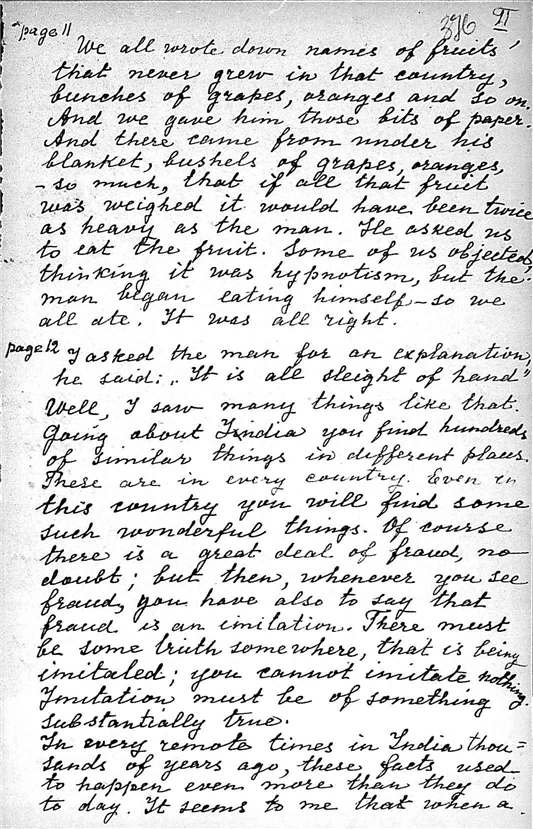 page 11
276 II
We all wrote down names of fruits
that never grew in that country,
bunches of grapes, oranges and so on.
And we gave him those bits of paper.
And there came from under his
blanket, bushels of grapes, oranges,
- so much, that if all that fruit
was weighed it would have been twice
as heavy as the man. He asked us
to eat the fruit. Some of us objected,
thinking it was hypnotism, but the
man began eating himself - so we
all ate. It was all right.
page 12
I asked the man for an explanation,
he said: „It is all sleight of hand"
Well, I saw many things like that.
Going about India you find hundreds
of similar things in different places.
These are in every country. Even in
this country you will find some
such wonderful things. Of course
there is a great deal of fraud, no
doubt; but then, whenever you see
fraud, you have also to say that
fraud is an imitation. There must
be some truth somewhere, that is being
imitated; you cannot imitate nothing.
Imitation must be of something
substantially true.
In every remote times in India thou=
sands of years ago, these facts used
to happen even more than they do
to day. It seems to me that when a